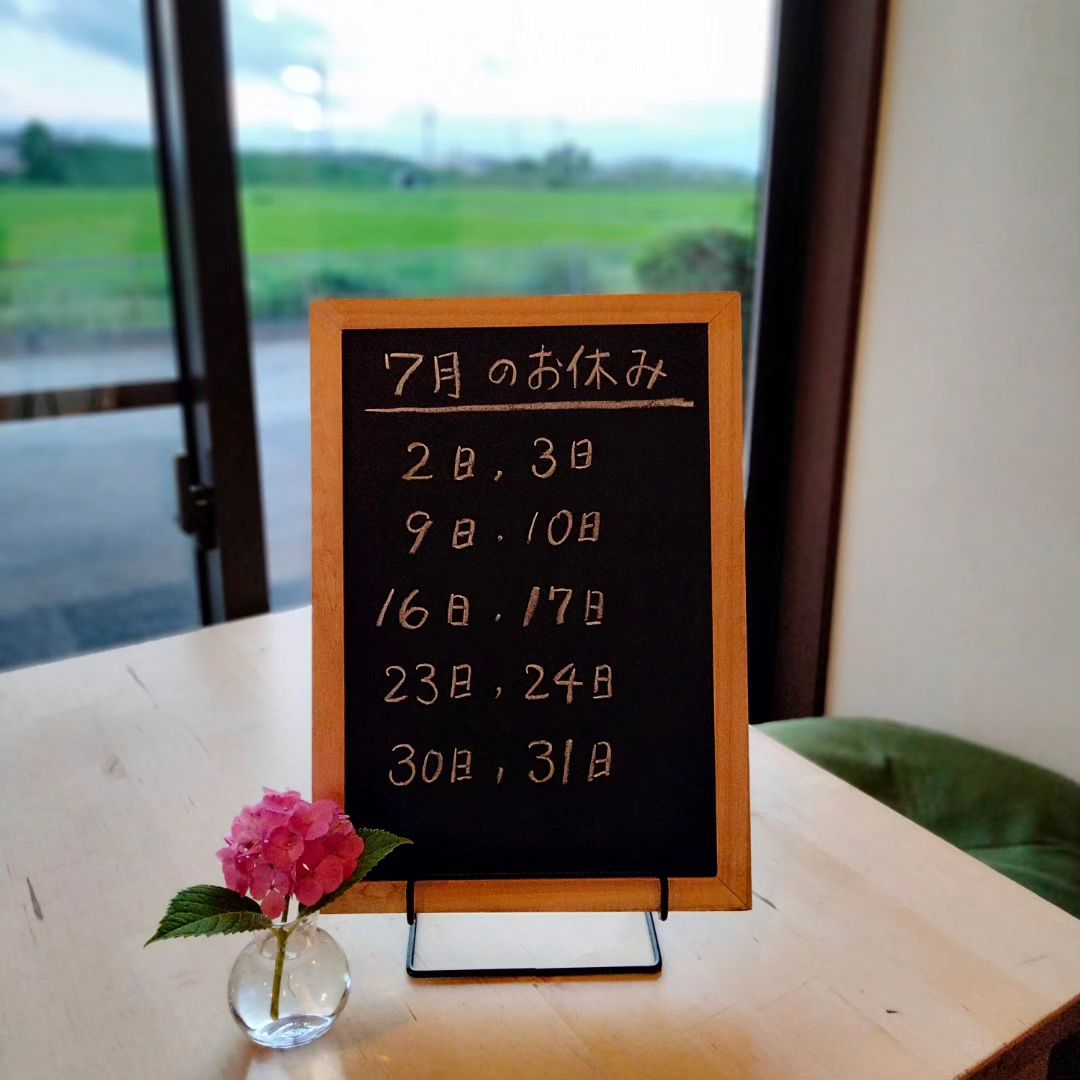 7月のお休み
2日,3日
9日.10日
16日.17日
23日,24日
30日,31日